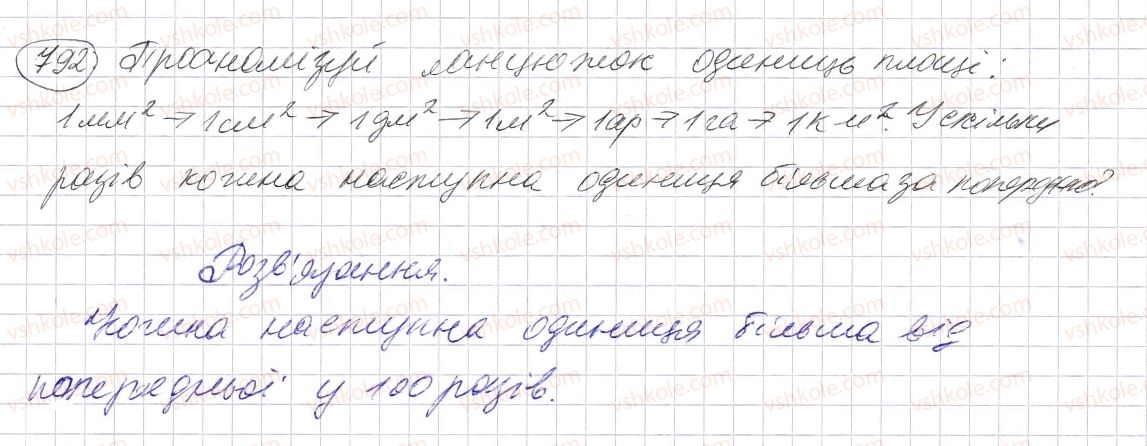 792 Проаналізуй ланцюжок одиниць площі:
1мм² → 1см² → 1дм² → 1м² → 1ар → 1га → 1км². У скільки
разів кожна наступна одиниця більша за попередню?
Розв'язання.
Кожна наступна одиниця більша від
попередньої у 100 разів.